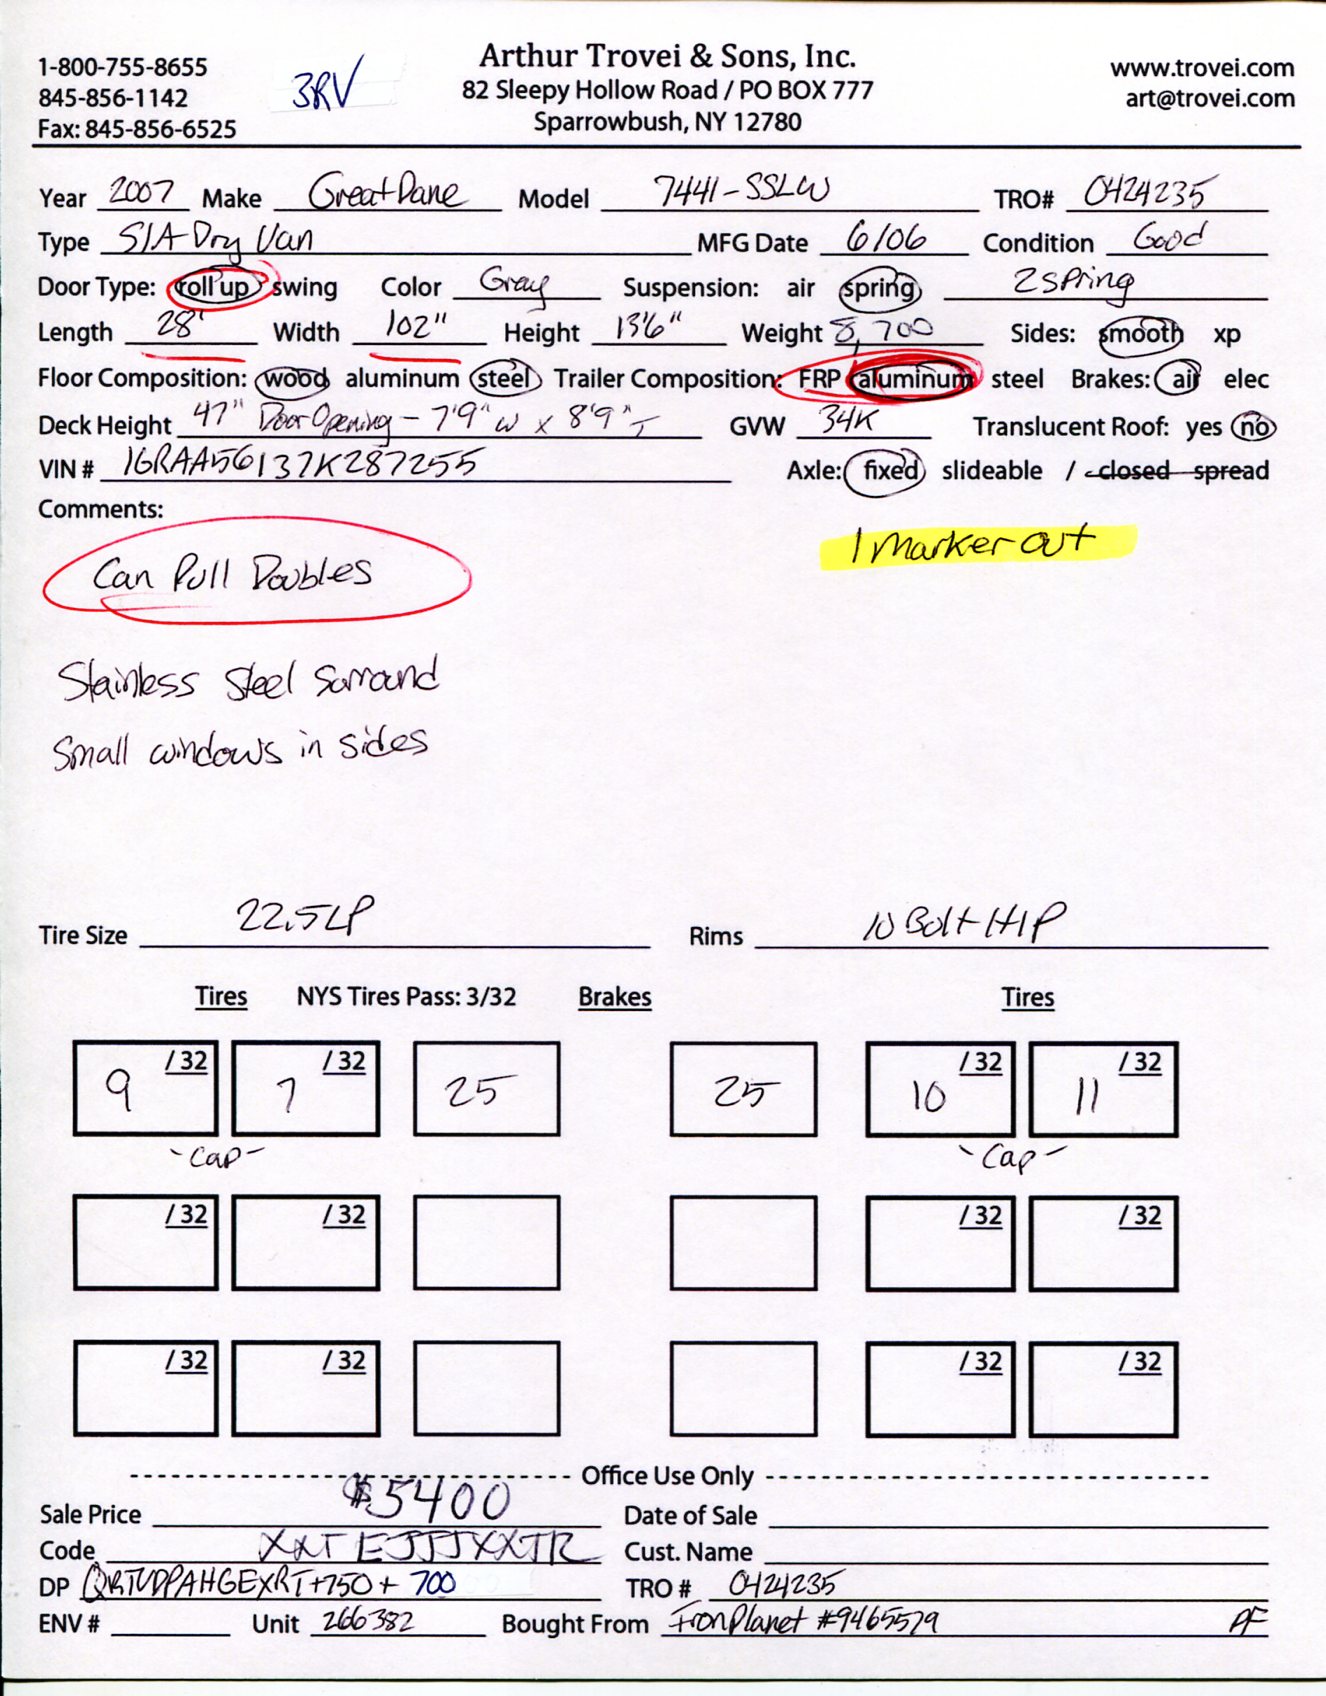 Arthur Trovei & Sons, Inc.
1-800-755-8655 3RV 82 Sleepy Hollow Road / PO BOX 777 www.trovei.com
845-856-1142 Sparrowbush, NY 12780 art@trovei.com
Fax: 845-856-6525
Year 2007 Make Great Dane Model 7441-SSLW TRO# 0424235
Type S/A Dry Van MFG Date 6/06 Condition Good
Door Type: roll up swing Color Gray Suspension: air spring 2 Spring
Length 28' Width 102" Height 13'6" Weight 8,700 Sides: smooth xp
Floor Composition: wood aluminum steel Trailer Composition: FRP aluminum steel Brakes: air elec
Deck Height 47" Door Opening - 7'9"W x 8'9"T GVW 34K Translucent Roof: yes no
VIN # 1GRAA56137K287255 Axle: fixed slideable / closed spread
Comments:
1 Marker out
Can Pull Doubles
Stainless Steel Surround
Small windows in sides
Tire Size 22.5LP Rims 10 Bolt HP
Tires NYS Tires Pass: 3/32 Brakes Tires
9 /32 7 /32 25 25 10 /32 11 /32
-Cap- -Cap-
/32 /32 /32 /32
/32 /32 /32 /32
Office Use Only
Sale Price $5400 Date of Sale
Code XXTEJJJXXTR Cust. Name
DP +750+700 TRO # 0424235
ENV # Unit 266382 Bought From IronPlanet #9465579 PF